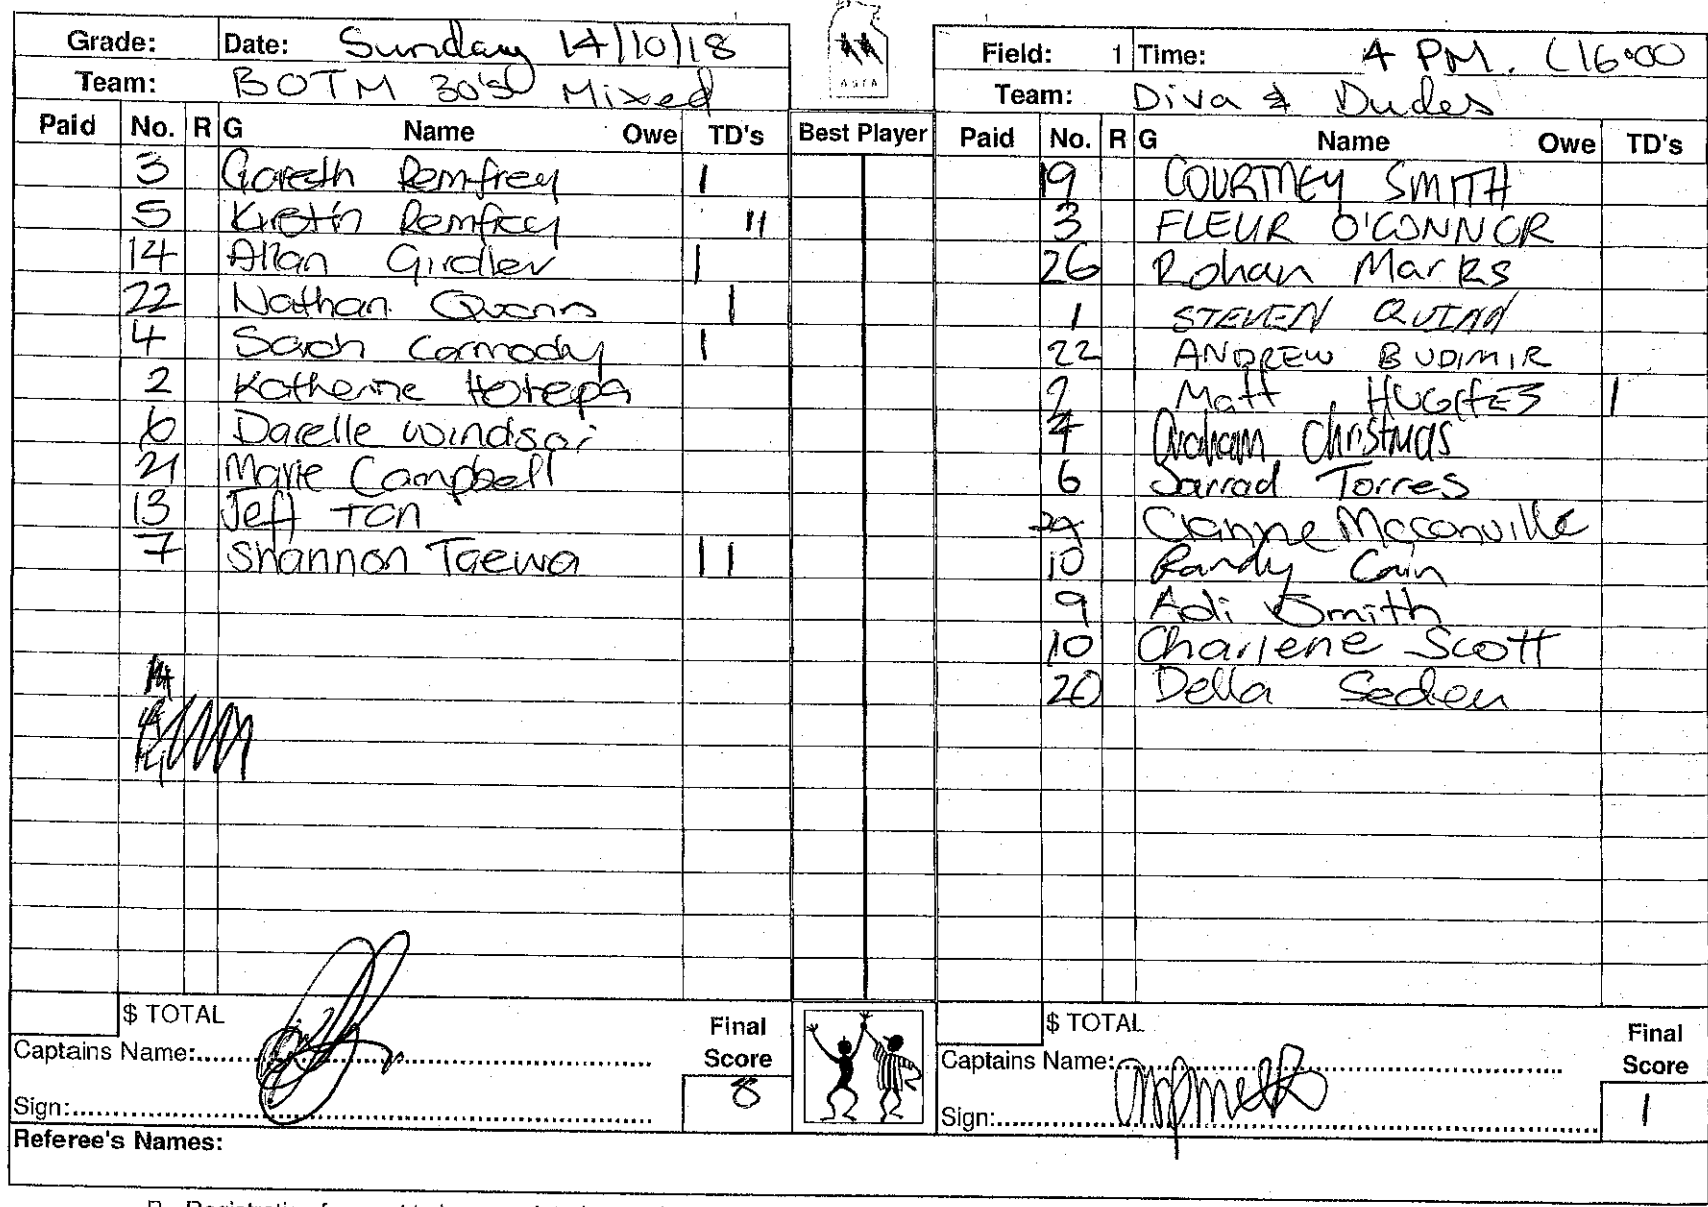 Grade: Date: Sunday 14/10/18
Team: BOTM 30's Mixed
Paid No. R G Name Owe TD's Best Player
3 Gareth Remfrey 1
5 Kristin Remfrey 11
14 Allan Girdler 1
22 Nathan 1
4 Sarah Carmody 1
2 Katherine
6 Darelle Windsor
21 Marie Campbell
13 Jeff Tan
7 Shannon Taewa 11
14
$ TOTAL
Captains Name:
Final Score
8
Sign:
Referee's Names:
ASTA
Field: 1 Time: 4 PM. (16:00
Team: Diva & Dudes
Paid No. R G Name Owe TD's
19 COURTNEY SMITH
3 FLEUR O'CONNOR
26 Rohan Marks
1 STEVEN QUINN
22 ANDREW BUDIMIR
2 Matt HUGHES 1
Graham Christmas
6 Jarrad Torres
Mcconville
10 Randy Cain
9 Adi Smith
10 Charlene Scott
20 Della Seden
$ TOTAL
Captains Name:
Final Score
1
Sign: